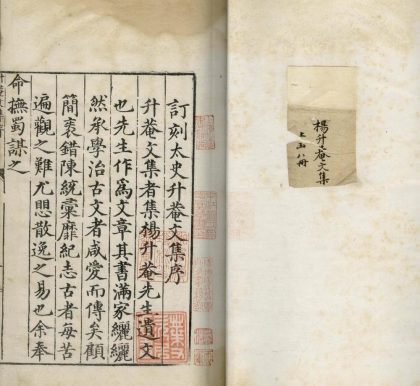 楊升菴文集
八冊
訂刻太史升菴文集序
升菴文集者集楊升菴先生遺文
也先生作爲文章其書滿家纚纚
然承學治古文者咸愛而傳矣顧
簡袠錯陳統彙靡紀志古者每苦
遍觀之難尤愳散逸之易也余奉
命撫蜀謀之